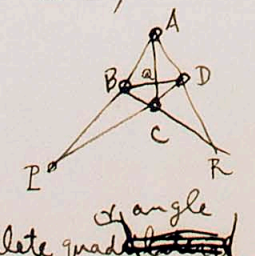 A
B Q D
C
P R
angle
lete quad